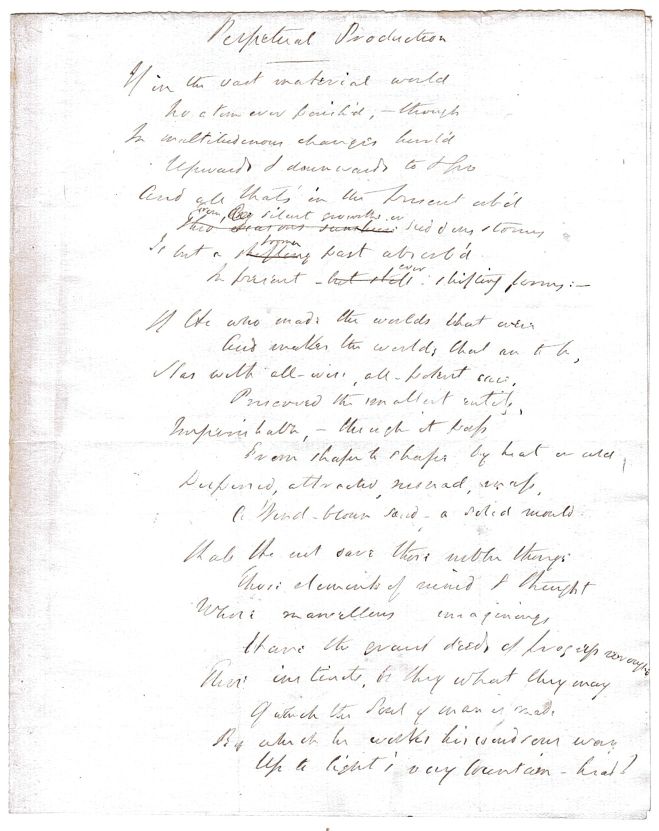 Perpetual Production
If in the vast material world
No atom ever perish'd, - though
In multitudinous changes hurl'd
Upwards & downwards to & fro
And all that's in the present orb'd
From, By silent growths or
Thro seasons sudden storms
Is but a shifting former past absorb'd
In present - but still ever shifting forms: -
If He who made the worlds that were
And makes the worlds that are to be,
Has with all-wise, all-potent care,
Preserved the smallest entity,
Imperishable, - though it pass
From shape to shape by heat or cold
Dispersed, attracted, mass,
A wind-blown sand - a solid mould.
Shall He not save those nobler things
Those elements of mind & thought
Whose marvellous imaginings
Have the grand deeds of progress wrought
Those instincts, be they what they may
Of which the Soul of man is made
By which he works his wondrous way
Up to light's very fountain-head?